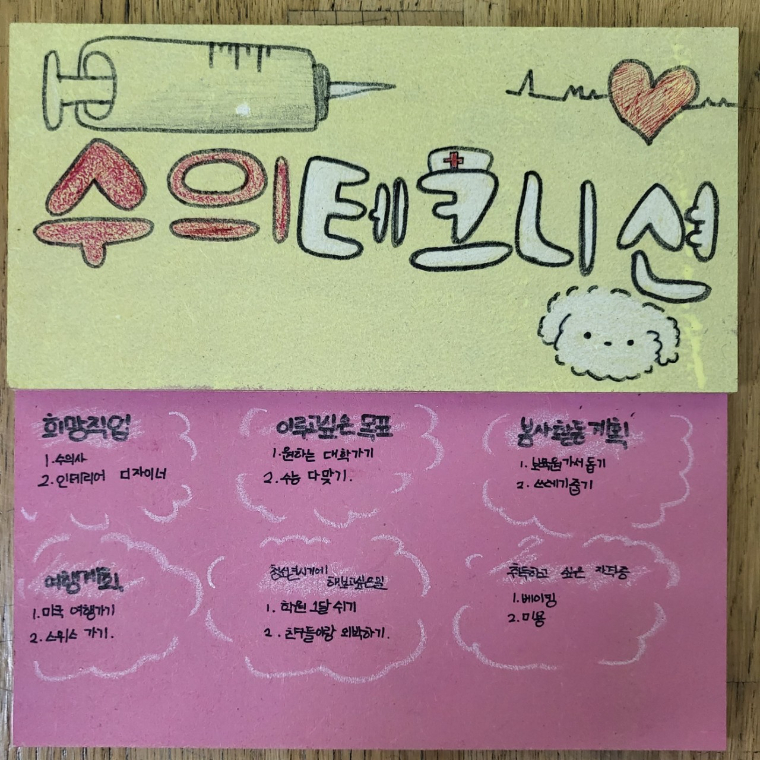 수의테크니션
희망직업
1.수의사
2.인테리어 디자이너
이루고싶은 목표
1.원하는 대학가기
2.수능 다맞기.
봉사활동계획
1.보육원가서돕기
2.쓰레기줍기
여행계획
1.미국 여행가기
2.스위스 가기.
청소년시기에
해보고싶은일
1. 학원 1달 쉬기
2. 친구들이랑 외박하기.
취득하고 싶은 자격증
1.베이킹
2.미용